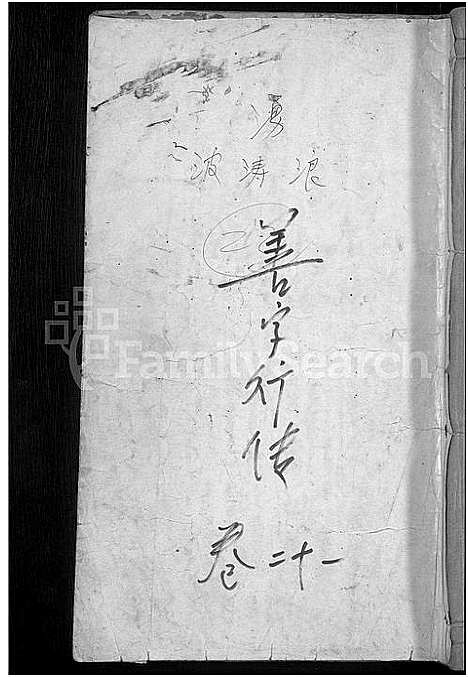 湧
波涛浪
2
善字行传
卷二十一
FamilySearch